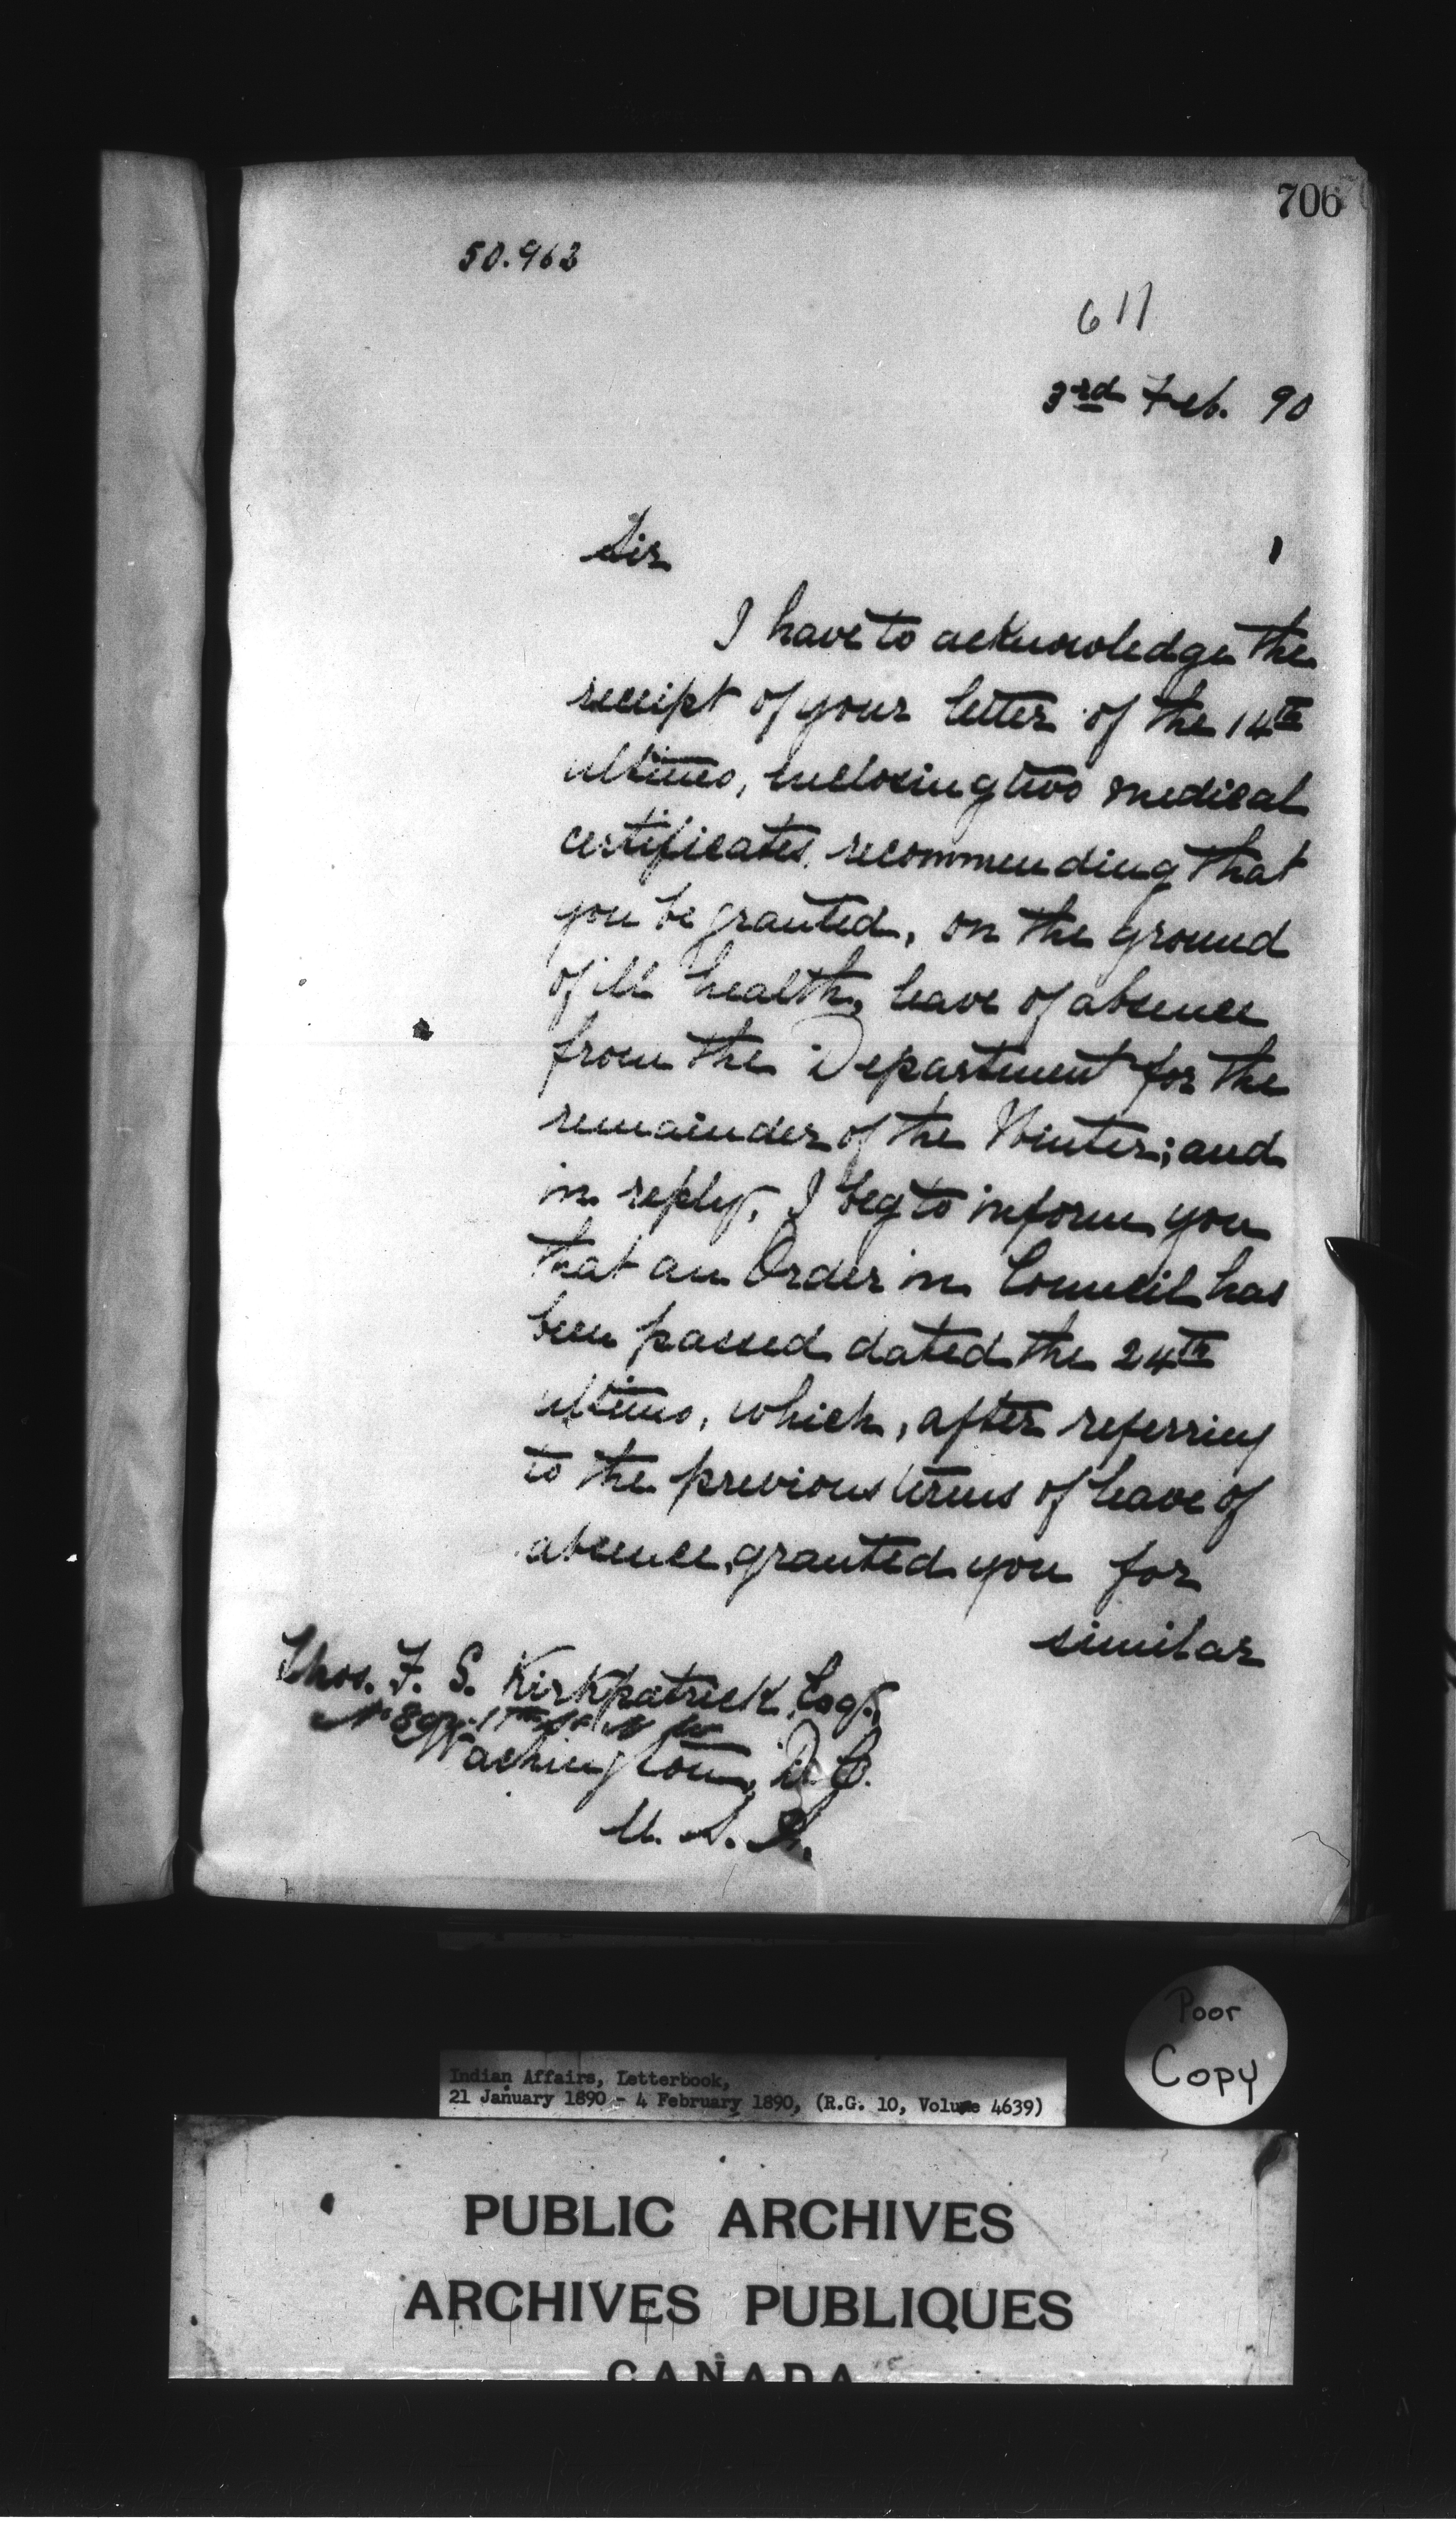 706
50.963
611
3rd Feb. 90
Sir
I have to acknowledge the
receipt of your letter of the 14th
ultimo, enclosing two medical
certificates, recommending that
you be granted, on the ground
of ill health, leave of absence
from the Department for the
remainder of the Winter; and
in reply, I beg to inform you
that an Order in Council has
been passed dated the 24th
ultimo, which, after referring
to the previous terms of leave of
absence, granted you for
similar
Thos. F. S. Kirkpatrick, Esq.,
No 17th St N W
Washington, D.C.
U. S. A.
Poor
Copy
Indian Affairs, Letterbook,
21 January 1890 - 4 February 1890, (R.G. 10, Volume 4639)
PUBLIC ARCHIVES
ARCHIVES PUBLIQUES
CANADA